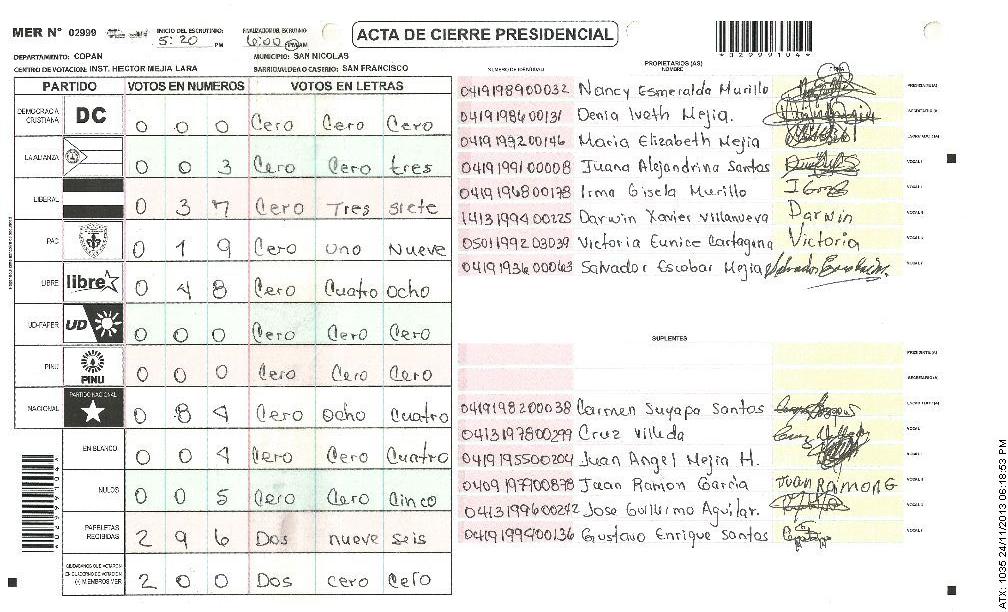 MER N° 02999 INICIO DEL ESCRUTINIO: 5:20 PM FINALIZACION DEL ESCRUTINIO 6:00 PM/AM ACTA DE CIERRE PRESIDENCIAL
*32999104*
DEPARTAMENTO: COPAN MUNICIPIO: SAN NICOLAS
CENTRO DE VOTACION: INST. HECTOR MEJIA LARA BARRIO/ALDEA O CASERIO: SAN FRANCISCO
PARTIDO VOTOS EN NUMEROS VOTOS EN LETRAS
DEMOCRACIA CRISTIANA DC 0 0 0 Cero Cero Cero
LA ALIANZA 0 0 3 Cero Cero tres
LIBERAL 0 3 7 Cero Tres siete
PAC 0 1 9 Cero uno Nueve
LIBRE libre 0 4 8 Cero Cuatro ocho
UD-FAPER UD 0 0 0 Cero Cero Cero
PINU PINU 0 0 0 Cero Cero Cero
NACIONAL PARTIDO NACIONAL 0 8 4 Cero ocho Cuatro
EN BLANCO 0 0 4 Cero Cero Cuatro
NULOS 0 0 5 Cero Cero Cinco
PAPELETAS RECIBIDAS 2 9 6 Dos nueve seis
CIUDADANOS QUE VOTARON EN CUADERNO DE VOTACION (+) MIEMBROS MER 2 0 0 Dos cero Cero
PROPIETARIOS (AS)
NUMERO DE IDENTIDAD NOMBRE
0419198900032 Nancy Esmeralda Murillo PRESIDENTE (A)
0419198600131 Denia Iveth Mejia. SECRETARIO (A)
0419199200146 Maria Elizabeth Mejia ESCRUTADOR (A)
0419199100008 Juana Alejandrina Santos VOCAL I
0419196800178 Irma Gisela Murillo
1413199400225 Darwin Xavier Villanueva Darwin
0501199203039 Victoria Eunice Cartagena Victoria
0419193600063 Salvador Escobar Mejia
SUPLENTES
PRESIDENTE (A)
SECRETARIO (A)
0419198200038 Carmen Suyapa Santos
0413197800299 Cruz Villeda
0419195500204 Juan Angel Mejia H.
0409197900878 Juan Ramon Garcia JUAN RAMON G
0413199600242 Jose Guillermo Aguilar.
0419199400136 Gustavo Enrique Santos
ATX: 1035 24/11/2013 06:18:53 PM